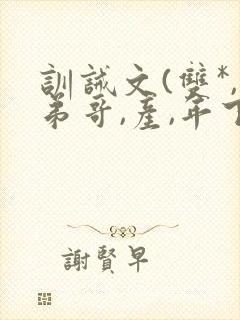 訓誡文(雙*,
弟哥,產,年下
謝賢早